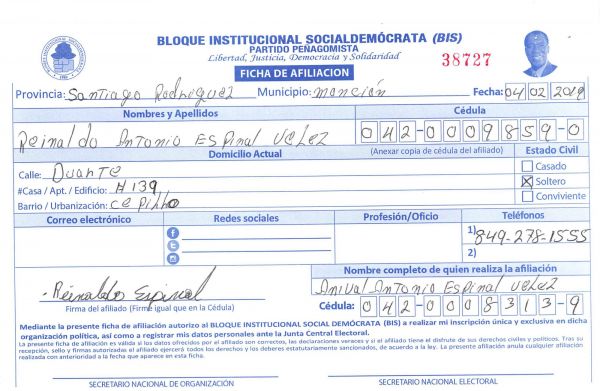 BLOQUE INSTITUCIONAL SOCIALDEMÓCRATA (BIS)
PARTIDO PEÑAGOMISTA
Libertad, Justicia, Democracia y Solidaridad
38727
FICHA DE AFILIACION
Provincia: Santiago Rodriguez Municipio: Monción Fecha: 04/02/2019
Nombres y Apellidos Cédula
Reinaldo Antonio Espinal Velez 042-0009859-0
Domicilio Actual (Anexar copia de cédula del afiliado) Estado Civil
Calle: Duarte Casado
#Casa / Apt. / Edificio: #139 X Soltero
Barrio / Urbanización: Cepillo Conviviente
Correo electrónico Redes sociales Profesión/Oficio Teléfonos
1) 849-278-1555
2)
Nombre completo de quien realiza la afiliación
Reinaldo Espinal Anival Antonio Espinal Velez
Firma del afiliado (Firme igual que en la Cédula) Cédula: 042-0008313-9
Mediante la presente ficha de afiliación autorizo al BLOQUE INSTITUCIONAL SOCIAL DEMÓCRATA (BIS) a realizar mi inscripción única y exclusiva en dicha
organización política, así como a registrar mis datos personales ante la Junta Central Electoral.
La presente ficha de afiliación es válida si los datos ofrecidos por el afiliado son correctos, las declaraciones veraces y si el afiliado tiene el disfrute de sus derechos civiles y políticos. Tras su
recepción, sello y firmas autorizadas el afiliado ejercerá todos los derechos y los deberes estatutariamente sancionados, de acuerdo a la ley. La presente afiliación anula cualquier afiliación
realizada con anterioridad a la fecha que aparece en esta ficha.
SECRETARIO NACIONAL DE ORGANIZACIÓN SECRETARIO NACIONAL ELECTORAL